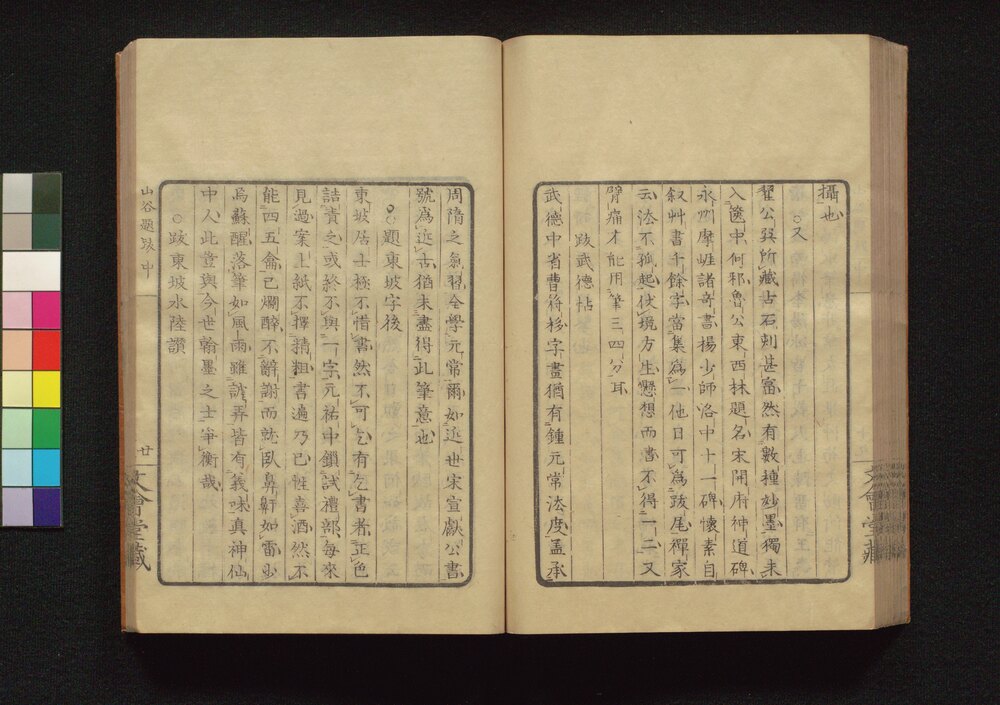 攝也
○又
翟公巽所藏古石刻甚富然有數種妙墨獨未
入篋中何邪魯公東西林題名宋開府神道碑
永州摩崖諸奇書楊少師洛中十一碑懷素自
叙艸書千餘字當集爲一他日可爲跋尾禪家
云法不孤起仗境方生懸想而書不得一二又
臂痛才能用筆三四分耳
跋武德帖
武德中省曹符移字畫猶有鍾元常法度盖承
周隋之氣習全學元常爾如近世宋宣獻公書
號爲近古猶未盡得此筆意也
○題東坡字後
東坡居士極不惜書然不可乞有乞書者正色
詰責之或終不與一字元祐中鎖試禮部每來
見過案上紙不擇精粗書遍乃已性喜酒然不
能四五龠已爛醉不辭謝而就臥鼻鼾如雷少
焉蘇醒落筆如風雨雖謔弄皆有義味真神仙
中人此豈與今世翰墨之士爭衡哉
○跋東坡水陸讚
山谷題跋中
廿
文會堂藏